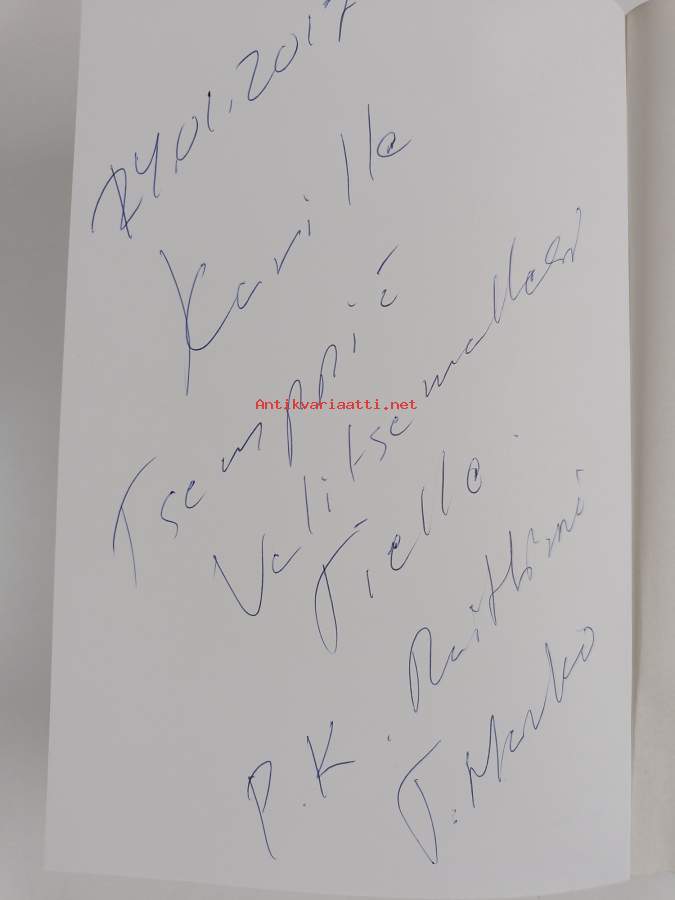 24.01.2017
Karille
Tsemppiä
Valitsemallasi
Tiellä.
P.K. Raittiini
T. Marko
Antikvariaatti.net